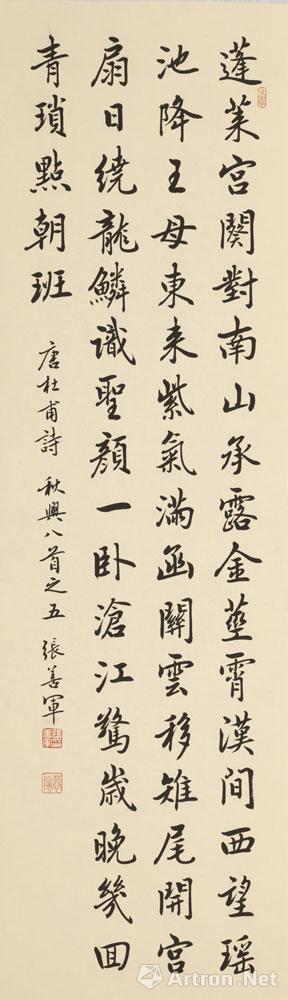 蓬莱宫闕對南山承露金莖霄漢間西望瑶
池降王母東来紫氣滿函關雲移雉尾開宫
扇日繞龍鱗識聖顔一卧滄江驚歲晚幾回
青瑣點朝班
唐杜甫詩 秋興八首之五 張善軍
Artron.Net